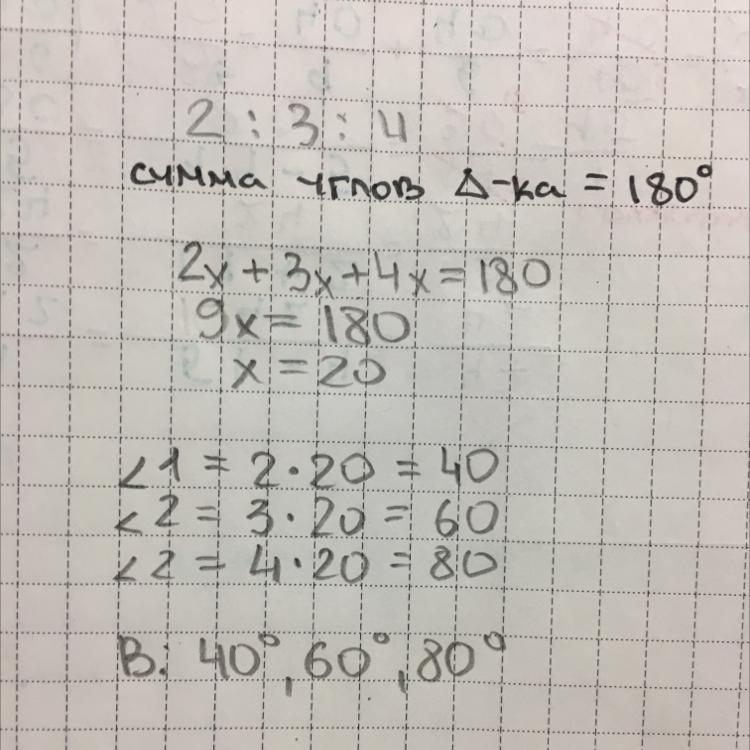 2 : 3 : 4
сумма углов Δ-ка = 180°
2x + 3x + 4x = 180
9x = 180
x = 20
∠1 = 2 · 20 = 40
∠2 = 3 · 20 = 60
∠2 = 4 · 20 = 80
В: 40°, 60°, 80°